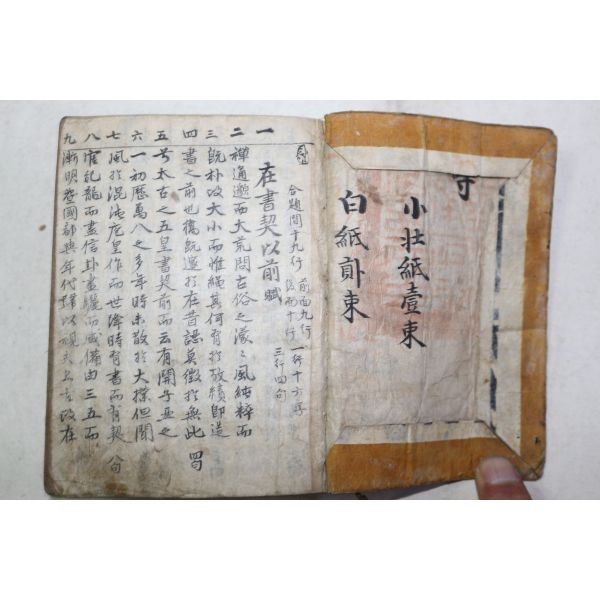 寺
小壮紙壹束
白紙貳束
合題間十九行 前面九行 一行十六字
後面十行 三行四句
一 在書契以前賦
二 禪通邈而大荒問古俗之濛々風純粹而
三 既朴政大小而惟繩其何有於放績卽造
四 書之前也從既邈於在昔認莫徵於無此 四句
五 号太古之五皇書契前而云有開乎五之
六 一初歷萬八之多年時未散於大樸但聞
七 風於混沌厖皇作而世降時有書而有契 八句
八 官記龍而盡信卦畫繩而咸備由三五而
九 漸明蓋國都與年代歸以視夫上古政在